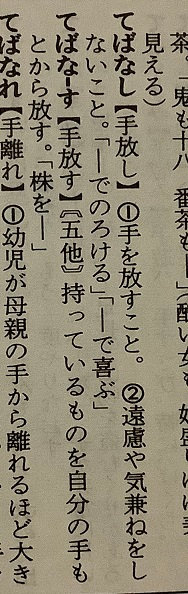 茶も十八 番茶も―」(醜い女も
見える)
てばなし【手放し】①手を放すこと。②遠慮や気兼ねをし
ないこと。「―でのろける」「―で喜ぶ」
てばな-す【手放す】〘五他〙持っているものを自分の手も
とから放す。「株を―」
てばなれ【手離れ】①幼児が母親の手から離れるほど大き